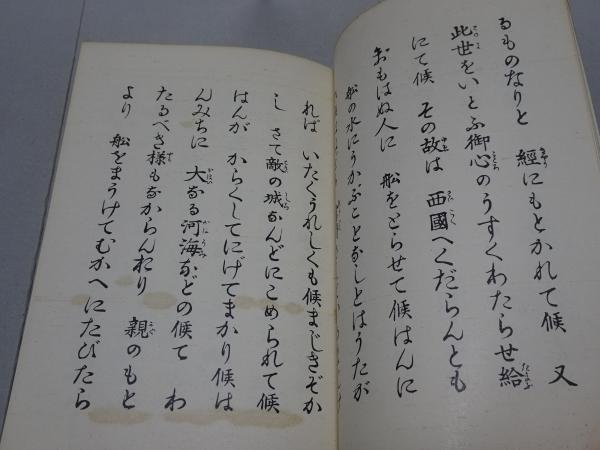 るものなりと　經にもとかれて候　又
此世をいとふ御心のうすくわたらせ給
にて候　その故は　西國へくだらんとも
おもはぬ人に　船をとらせて候はんに
船の水にうかぶことなしとはうたが
れば　いたくうれしくも候まじきぞか
し　さて敵の城なんどにこめられて候
はんが　からくしてにげてまかり候は
んみちに　大なる河海などの候て　わ
たるべき様もなからんをり　親のもと
より　船をまうけてむかへにたびたら